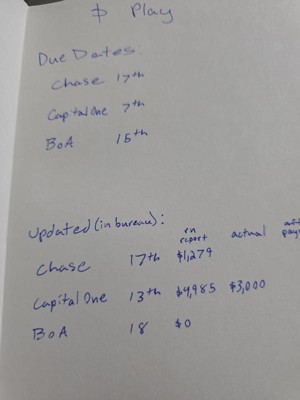 $ Play
Due Dates:
Chase 17th
Capital One 7th
BoA 15th
Updated (in bureau): on report actual
Chase 17th $1,279
Capital One 13th $4,985 $3,000
BoA 18 $0